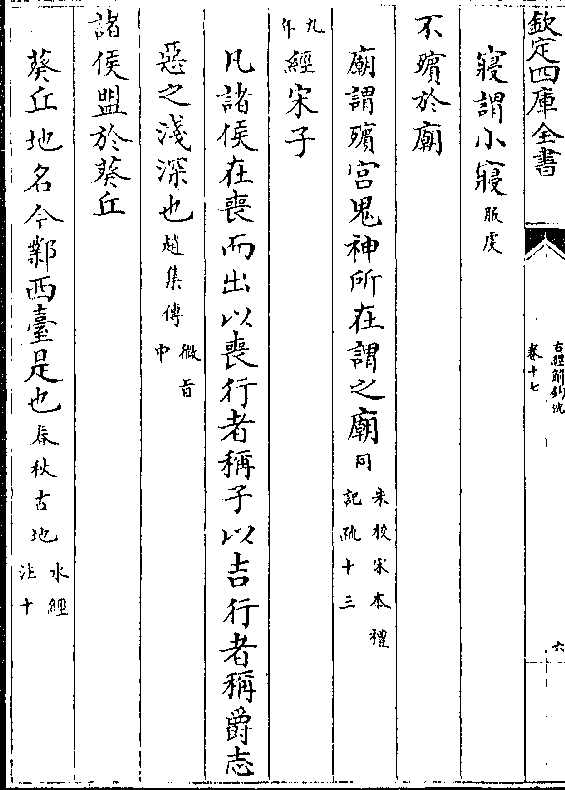 欽定四庫全書
古經解鉤沈
卷十七
六
寢謂小寢服䖍
不殯於廟
廟謂殯宮鬼神所在謂之廟同朱校宋本禮
記疏十三
九年
經宋子
凡諸侯在喪而出以喪行者稱子以吉行者稱爵志
惡之淺深也趙集傳微旨
中
諸侯盟於葵丘
葵丘地名今鄴西臺是也春秋古地水經
注十